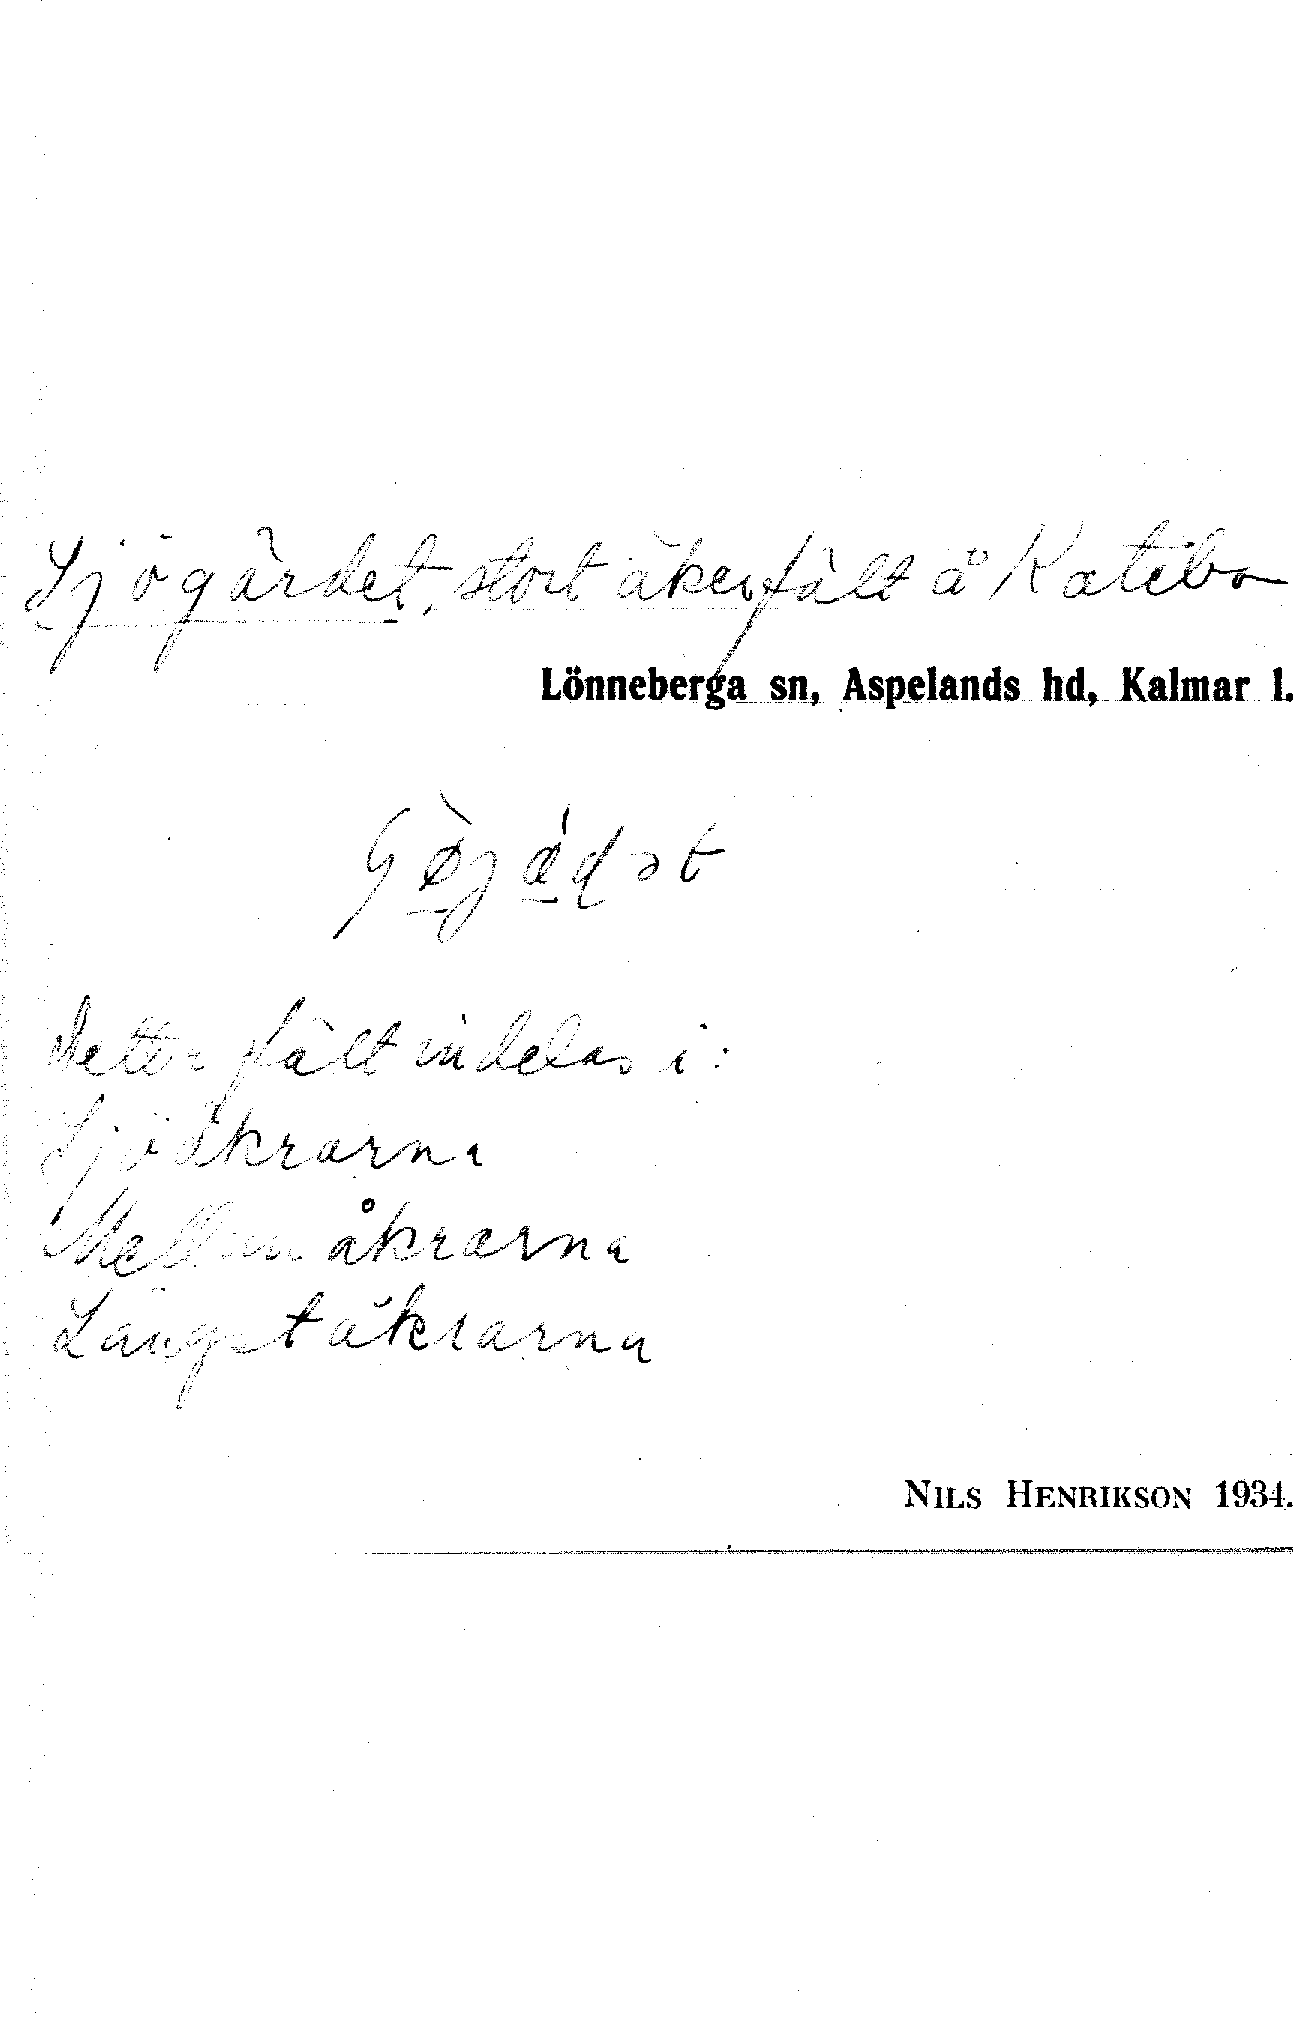 Sjögärdet, stort åkerfält å Katebo
Lönneberga sn, Aspelands hd, Kalmar l.
Detta fält indelas i:
Sjöåkrarna
Mellanåkrarna
Långståkrarna
NILS HENRIKSON 1934.